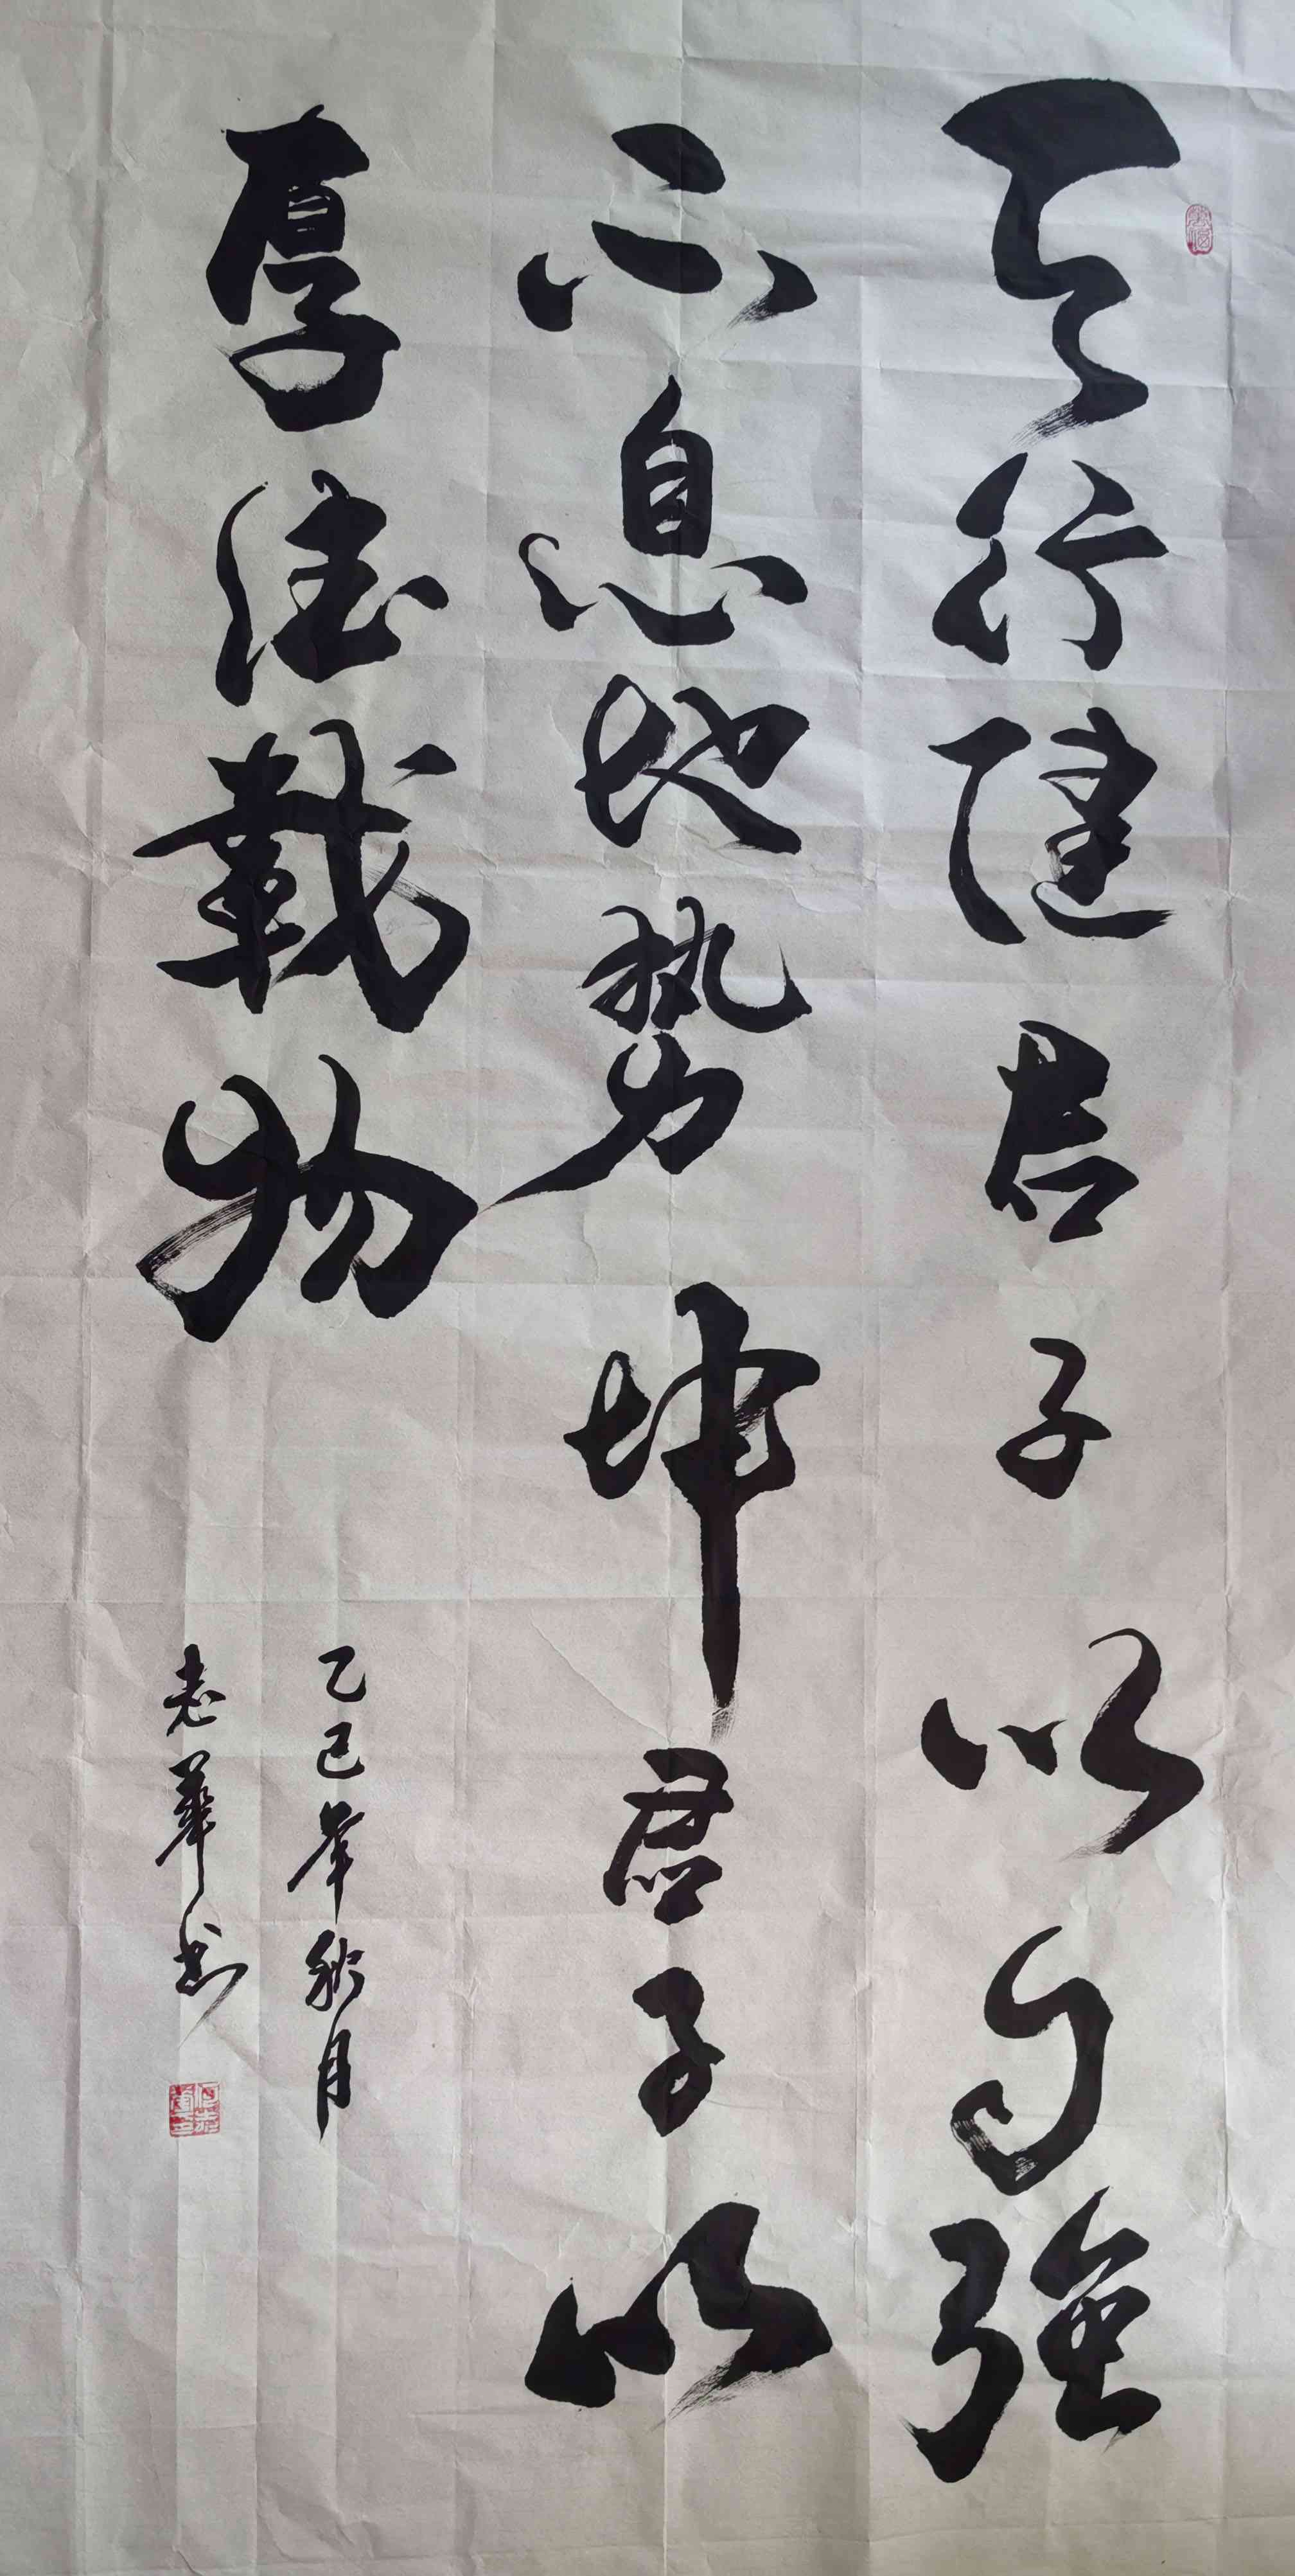 天行健君子以自強
不息地勢坤君子以
厚德載物
乙巳年秋月
志華书